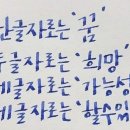 한글자로는 '꿈'
두글자로는 '희망'
세글자로는 '가능성
네글자로는 '할수있